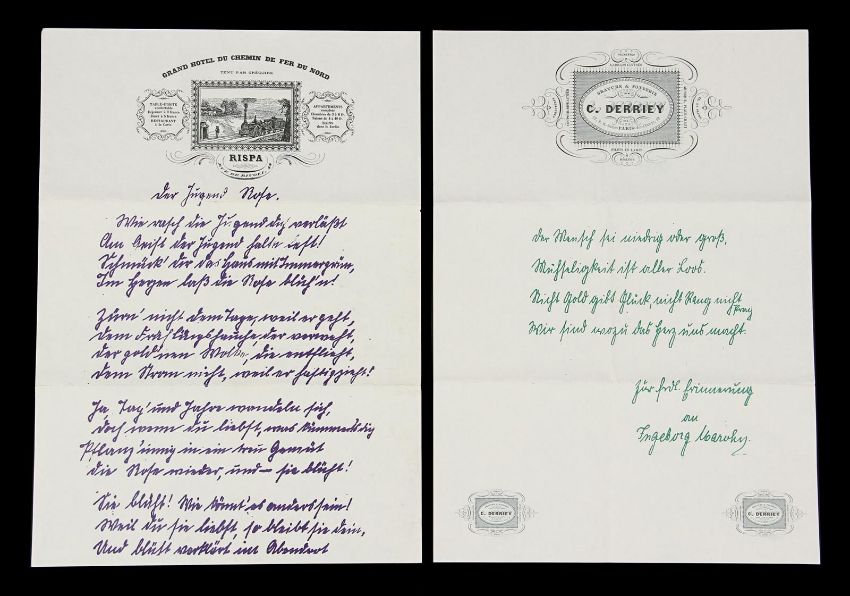 GRAND HOTEL DU CHEMIN DE FER DU NORD
TENU PAR GRÉGOIRE
TABLE-D'HOTE
RESTAURANT
à la Carte
APPARTEMENTS
RISPA
Der Jugend Rose.
Wie rasch die Jugend dich verläßt
Am Geist der Jugend halte fest!
Schmück' dir das Haus mit Immergrün,
Im Herzen laß die Rose blüh'n!
Zürn' nicht dem Tage, weil er geht,
Dem Frühlingshauche, der verweht,
Der gold'nen Wolke, die entflieht,
Dem Strom nicht, weil er hastig zieht!
Ja, Tag' und Jahre wandeln sich,
Doch wenn du liebst, was kümmert's dich
Pflanz' innig in ein treu Gemüt
Die Rose wieder, und – sie blüht!
Sie blüht! Wie könnt' es anders sein!
Weil du sie liebst, so bleibt sie dein,
Und blüht verklärt im Abendrot
GRAVURE & FONDERIE
C. DERRIEY
PARIS
Der Mensch sei niedrig oder groß,
Mühseligkeit ist aller Loos.
Nicht Gold gibt Glück, nicht Rang nicht Pracht
Wir sind wozu das Herz uns macht.
Zur frdl. Erinnerung
an
Ingeborg
C. DERRIEY
C. DERRIEY